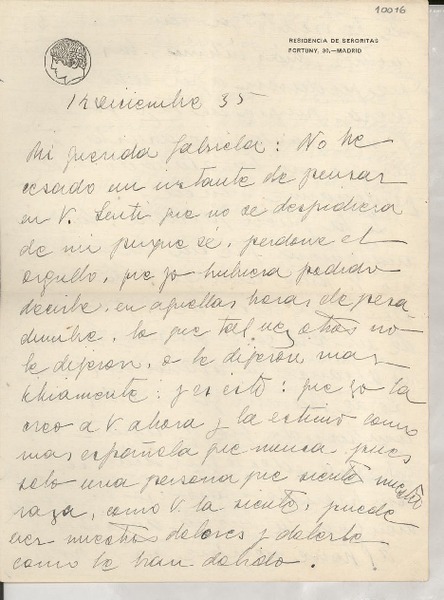 10016
RESIDENCIA DE SEÑORITAS
FORTUNY, 30.—MADRID
12 diciembre 35
Mi querida Gabriela: No he
cesado un instante de pensar
en V. Sentí que no se despidiera
de mí porque sé, perdone el
orgullo, que yo hubiera podido
decirle, en aquellas horas de pesa-
dumbre, lo que tal vez otros no
le dijeron, o le dijeron, mas
tibiamente: y es esto: que yo la
creo a V. ahora y la estimo como
mas española que nunca, pues
solo una persona que siente nuestra
raza, como V. la siente, puede
ver nuestros dolores y dolerle
como le han dolido.